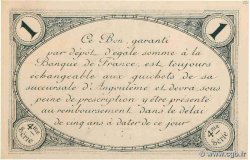 1
1
Ce Bon, garanti
par dépot d'égale somme à la
Banque de France, est toujours
échangeable aux guichets de sa
succursale d'Angoulême et devra sous
peine de prescription y être présenté
au remboursement dans le délai
de cinq ans à dater de ce jour
4me Série
4me Série